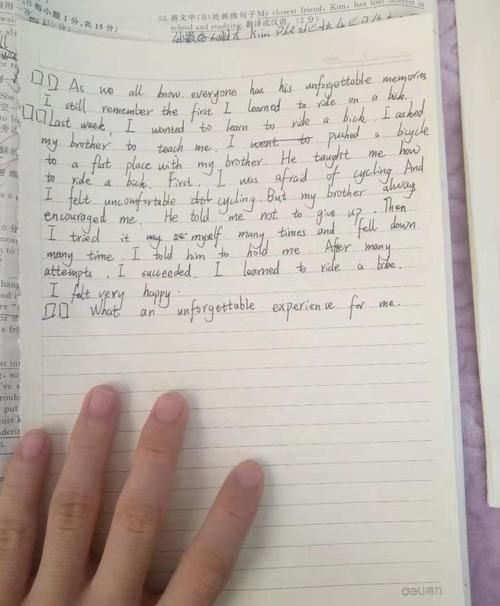 每小题1分,共15分)
33. 将文中(B)处画线句子My closest friend, Kim, has lost interest in
school and studying. 翻译成汉语。(2分)
As we all know. everyone has his unforgettable memories
I still remember the first I learned to ride on a bick.
Last week, I wanted to learn to ride a bick. I asked
my brother to teach me. I went to pushed a bicycle
to a flat place with my brother. He taught me how
to ride a bick. First. I was afraid of cycling. And
I felt uncomfortable cycling. But my brother always
encouraged me. He told me not to give up. Then
I tried it my se myself many times and fell down
many time. I told him to hold me. After many
attempts, I succeeded. I learned to ride a bike.
I felt very happy.
What an unforgettable experience for me.
deli得力